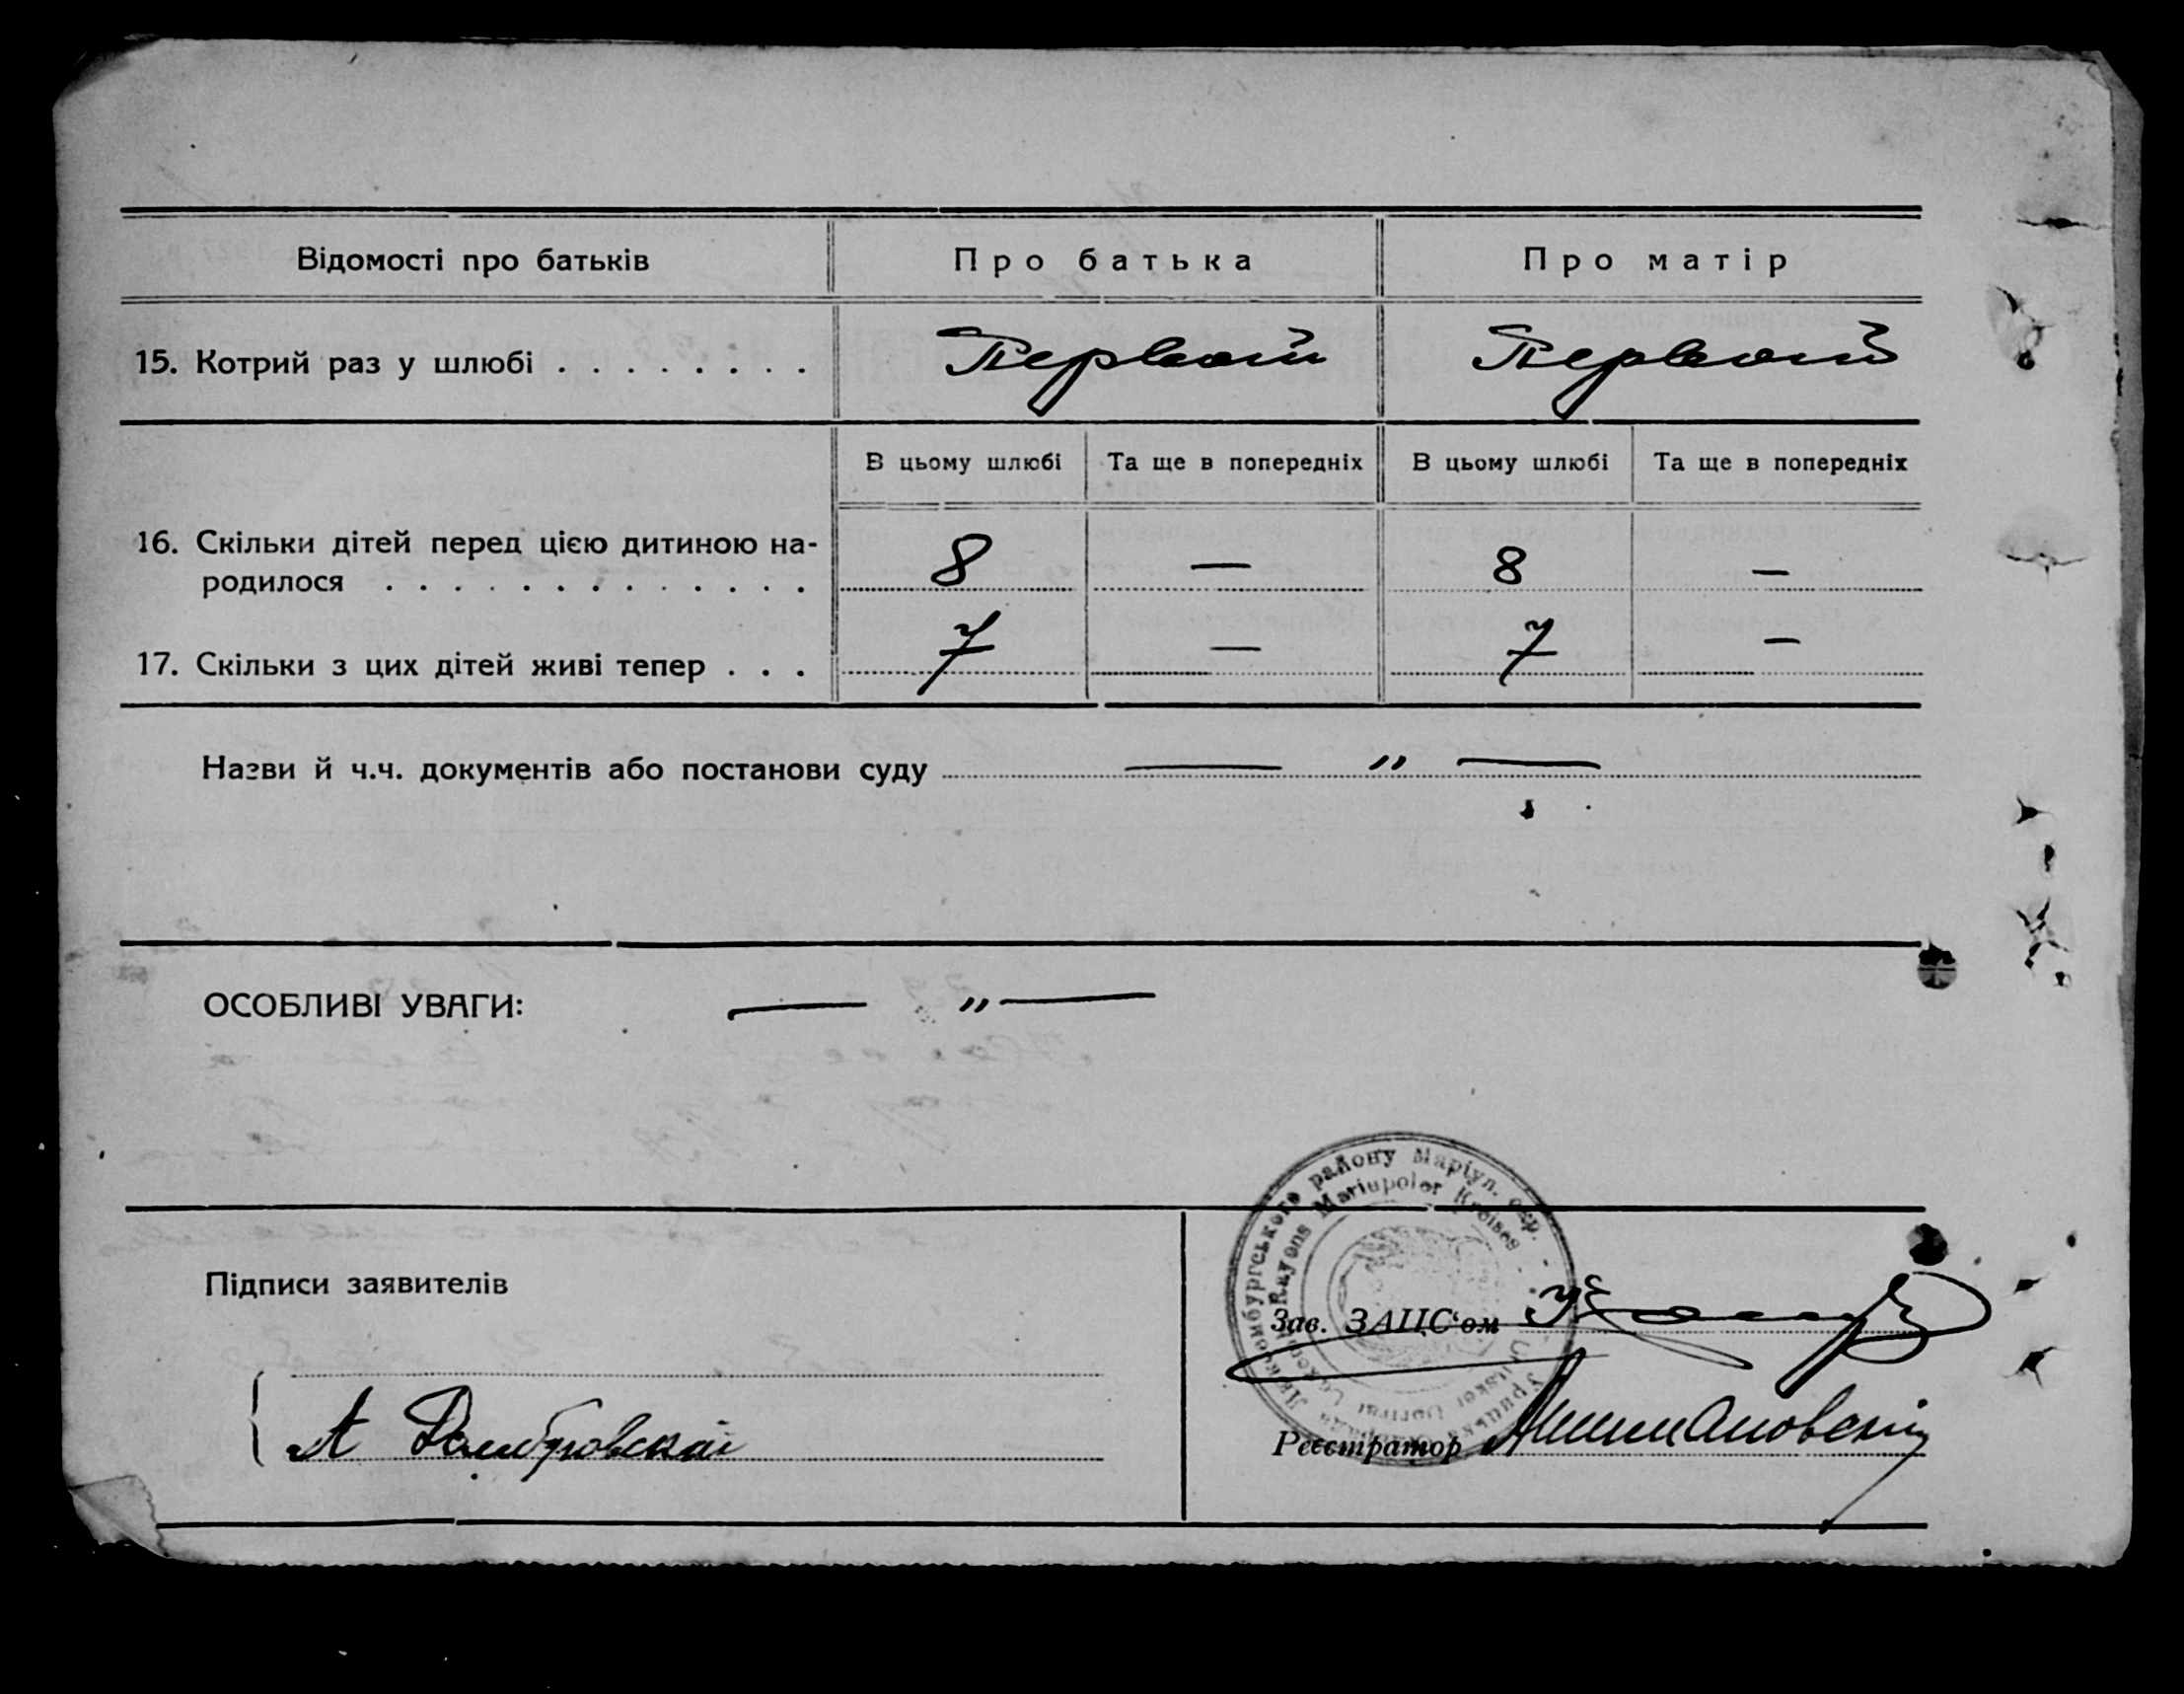 Відомості про батьків
Про батька
Про матір
15. Котрий раз у шлюбі . . . . . . . .
Первый
Первый
В цьому шлюбі
Та ще в попередніх
В цьому шлюбі
Та ще в попередніх
16. Скільки дітей перед цією дитиною на-
родилося . . . . . . . . . . . . .
8
—
8
—
17. Скільки з цих дітей живі тепер . . .
7
—
7
—
Назви й ч.ч. документів або постанови суду — „ —
ОСОБЛИВІ УВАГИ: — „ —
району Маріуп. окр.
Rayons Mariupoler Kreises
Підписи заявителів
Зав. ЗАЦС‘ом
А Домбровскай
Реєстратор